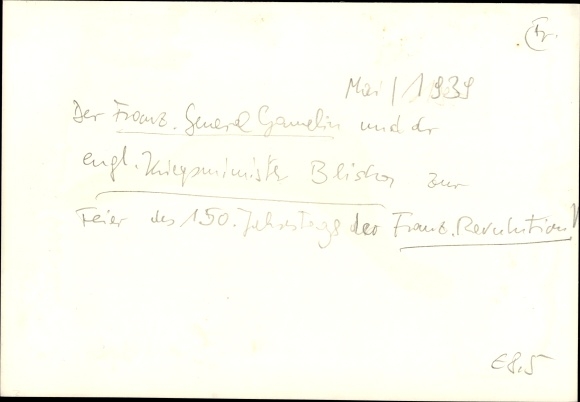 Fr.
Mai / 1939
Der Franz. General Gamelin und der
engl. Kriegsminister Blisha zur
Feier des 150. Jahrestags der Franz. Revolution
€8,5